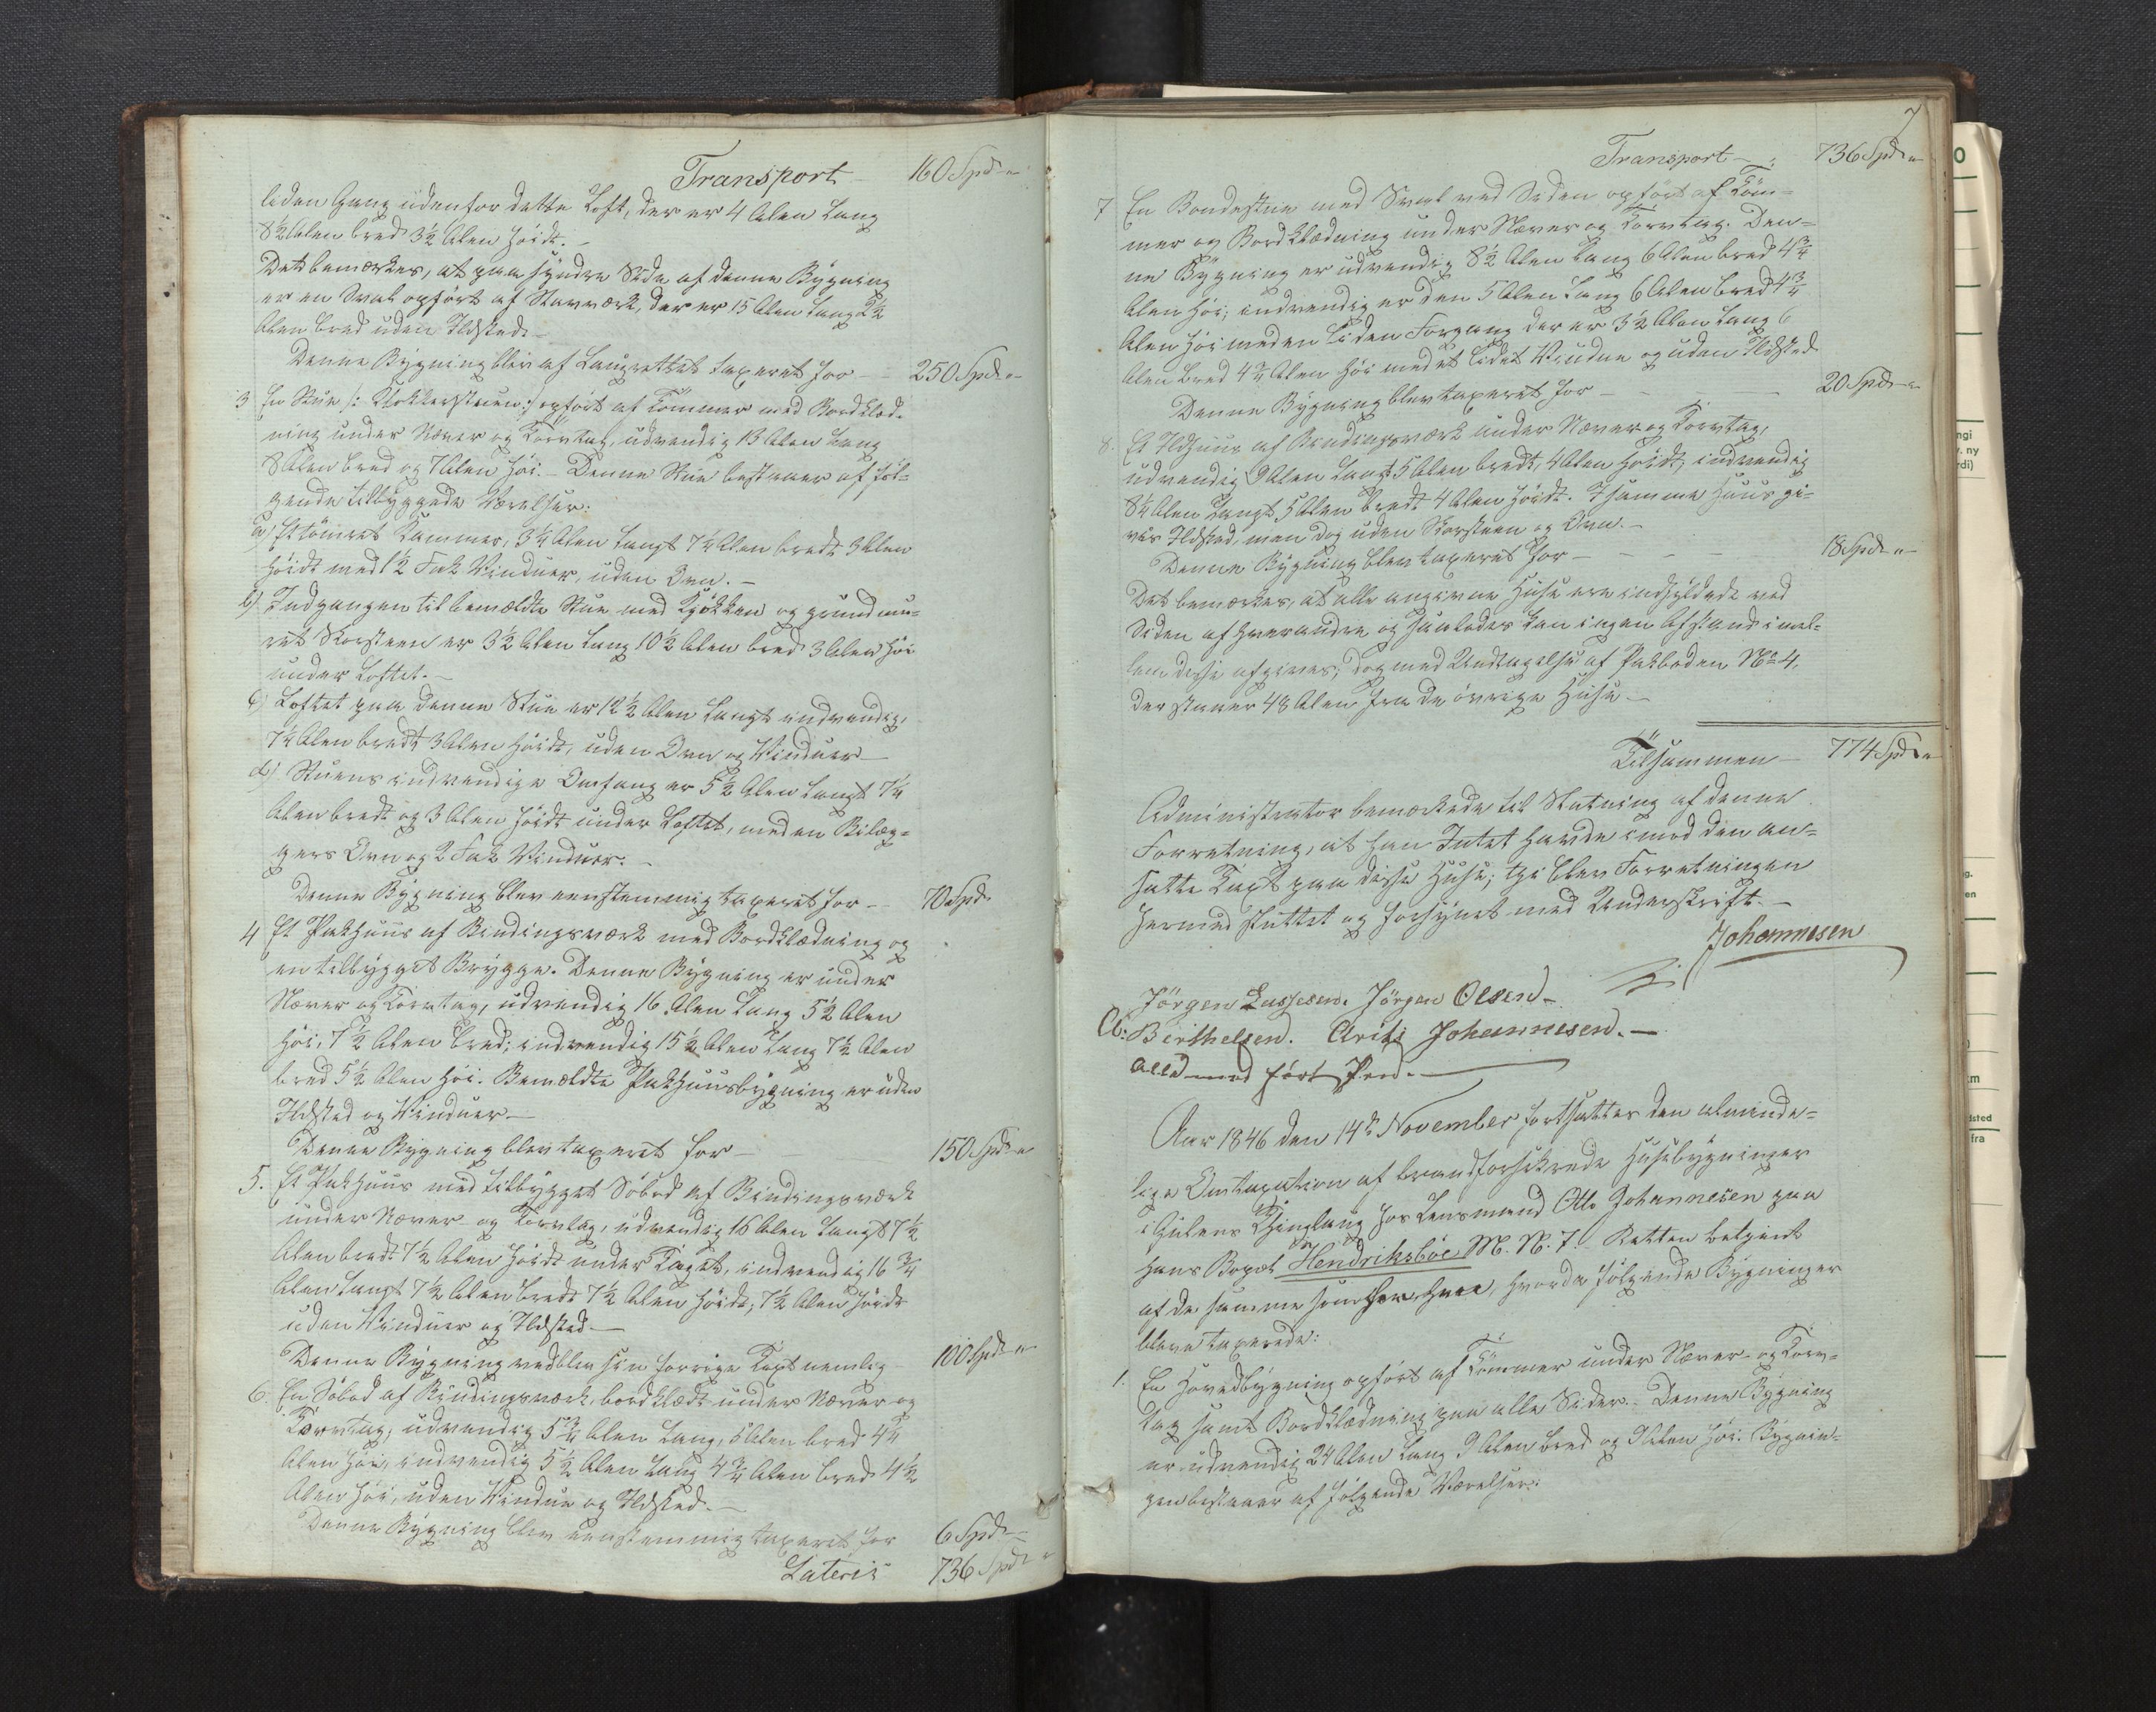 Transport 160 Spd "
liden Gang udenfor dette Loft, der er 4 Alen Lang
8½ Alen bred 3½ Alen høidt. –
Det bemærkes, at paa søndre Side af denne Bygning
er en Sval opført af Stavværk, der er 15 Alen Lang 2½
Alen bred uden Ildsted. –
Denne Bygning blev af Laugrettet taxeret for – 250 Spd "
3 En Stue /: :/ opført af Tømmer med Bordklæd-
ning under Næver og Torvtag, udvendig 13 Alen Lang
8 Alen bred og 7 Alen høi. – Denne Stue bestaaer af føl-
gende tilbyggede Værelser:
a) Et tømret Kammer, 3¼ Alen Langt 7¼ Alen bredt 3 Alen
høidt med 1½ Fak Vinduer, uden Ovn. –
b) Indgangen til bemældte Stue med Kjøkken og grundmu-
ret Skorsteen er 3½ Alen Lang 10½ Alen bred 3 Alen høi
under Loftet. –
c) Loftet paa denne Stue er 12½ Alen Langt indvendig,
7¼ Alen bredt 3 Alen høidt, uden Ovn og Vinduer –
d) Stuens indvendige Omfang er 5½ Alen Langt 7¼
Alen bredt og 3 Alen høidt under Loftet, med en Bilæg-
gers Ovn og 2 Fak Vinduer. –
Denne Bygning blev eenstemmig taxeret for – 70 Spd.
4 Et Pakhuus af Bindingsværk med Bordklædning og
en tilbygget Brygge. Denne Bygning er under
Næver og Torvtag, udvendig 16 Alen Lang 5½ Alen
høi, 7½ Alen bred; indvendig 15½ Alen Lang 7½ Alen
bred 5½ Alen høi. Bemældte Pakhuusbygning er uden
Ildsted og Vinduer –
Denne Bygning blev taxeret for – 150 Spd "
5. Et Pakhuus med tilbygget Søbod af Bindingsværk
under Næver- og Torvtag, udvendig 16 Alen Langt 7½
Alen bredt 7½ Alen høidt under Taget, indvendig 16¾
Alen Langt 7½ Alen bredt 7½ Alen høidt; 7½ Alen høidt
uden Vinduer og Ildsted –
Denne Bygning vedblev sin forrige Taxt nemlig – 100 Spd "
6. En Søbod af Bindingsværk, bordklædt under Næver og
Torvtag, udvendig 5¾ Alen Lang, 5 Alen bred 4¼
Alen høi, indvendig 5½ Alen Lang 4¾ Alen bred 4½
Alen høi, uden Vindue og Ildsted. –
Denne Bygning blev eenstemmig taxeret for 6 Spd –
Lateris 736 Spd "
7
Transport – 736 Spd "
7 En Bondestue med Sval ved Siden opført af Tøm-
mer og Bordklædning under Næver og Torvtag. Den-
ne Bygning er udvendig 8½ Alen Lang 6 Alen bred 4¾
Alen høi; indvendig er den 5 Alen Lang 6 Alen bred 4¾
Alen høi med en liden Forgang der er 3½ Alen Lang 6
Alen bred 4¾ Alen høi med et lidet Vindue og uden Ildsted
Denne Bygning blev taxeret for – – – 20 Spd "
8. Et Ildhuus af Bindingsværk under Næver og Torvtag,
udvendig 9 Alen Langt 5 Alen bredt, 4 Alen høidt, indvendig
8¼ Alen Langt 5 Alen bredt 4 Alen høidt. I samme Huus gi-
ves Ildsted, men dog uden Skorsteen og Ovn. –
Denne Bygning blev taxeret for – – – 18 Spd "
Det bemærkes, at alle angivne Huse ere ved
Siden af hverandre og saaledes kan ingen Afstand imel-
lem disse afgives; dog med Undtagelse af Pakboden No 4,
der staaer 48 Alen fra de øvrige Huse –
Tilsammen – 774 Spd "
Administrator bemærkede til Slutning af denne
Forretning, at han Intet havde imod den an-
satte Taxt paa disse Huse; thi blev Forretningen
hermed sluttet og forsynet med Underskrift. –
Johannesen
Jörgen Lassesen. Jörgen Olsen –
A. Berthelsen. Johannesen. –
alle med ført Pen. –
Aar 1846 den 14de November fortsattes den alminde-
lige Omtaxation af brandforsikrede Husebygninger
i Gulens Thinglaug hos Lensmand Otto Johannesen paa
hans Bopæl Hendriksbøe M. N. 7. Retten betjent
af de samme som , hvorda følgende Bygninger
bleve taxerede:
1. En Hovedbygning opført af Tømmer under Næver- og Torv-
tag samt Bordklædning paa alle Sider. – Denne Bygning
er udvendig 24 Alen Lang 9 Alen bred og 9 Alen høi. Bygnin-
gen bestaaer af følgende Værelser: